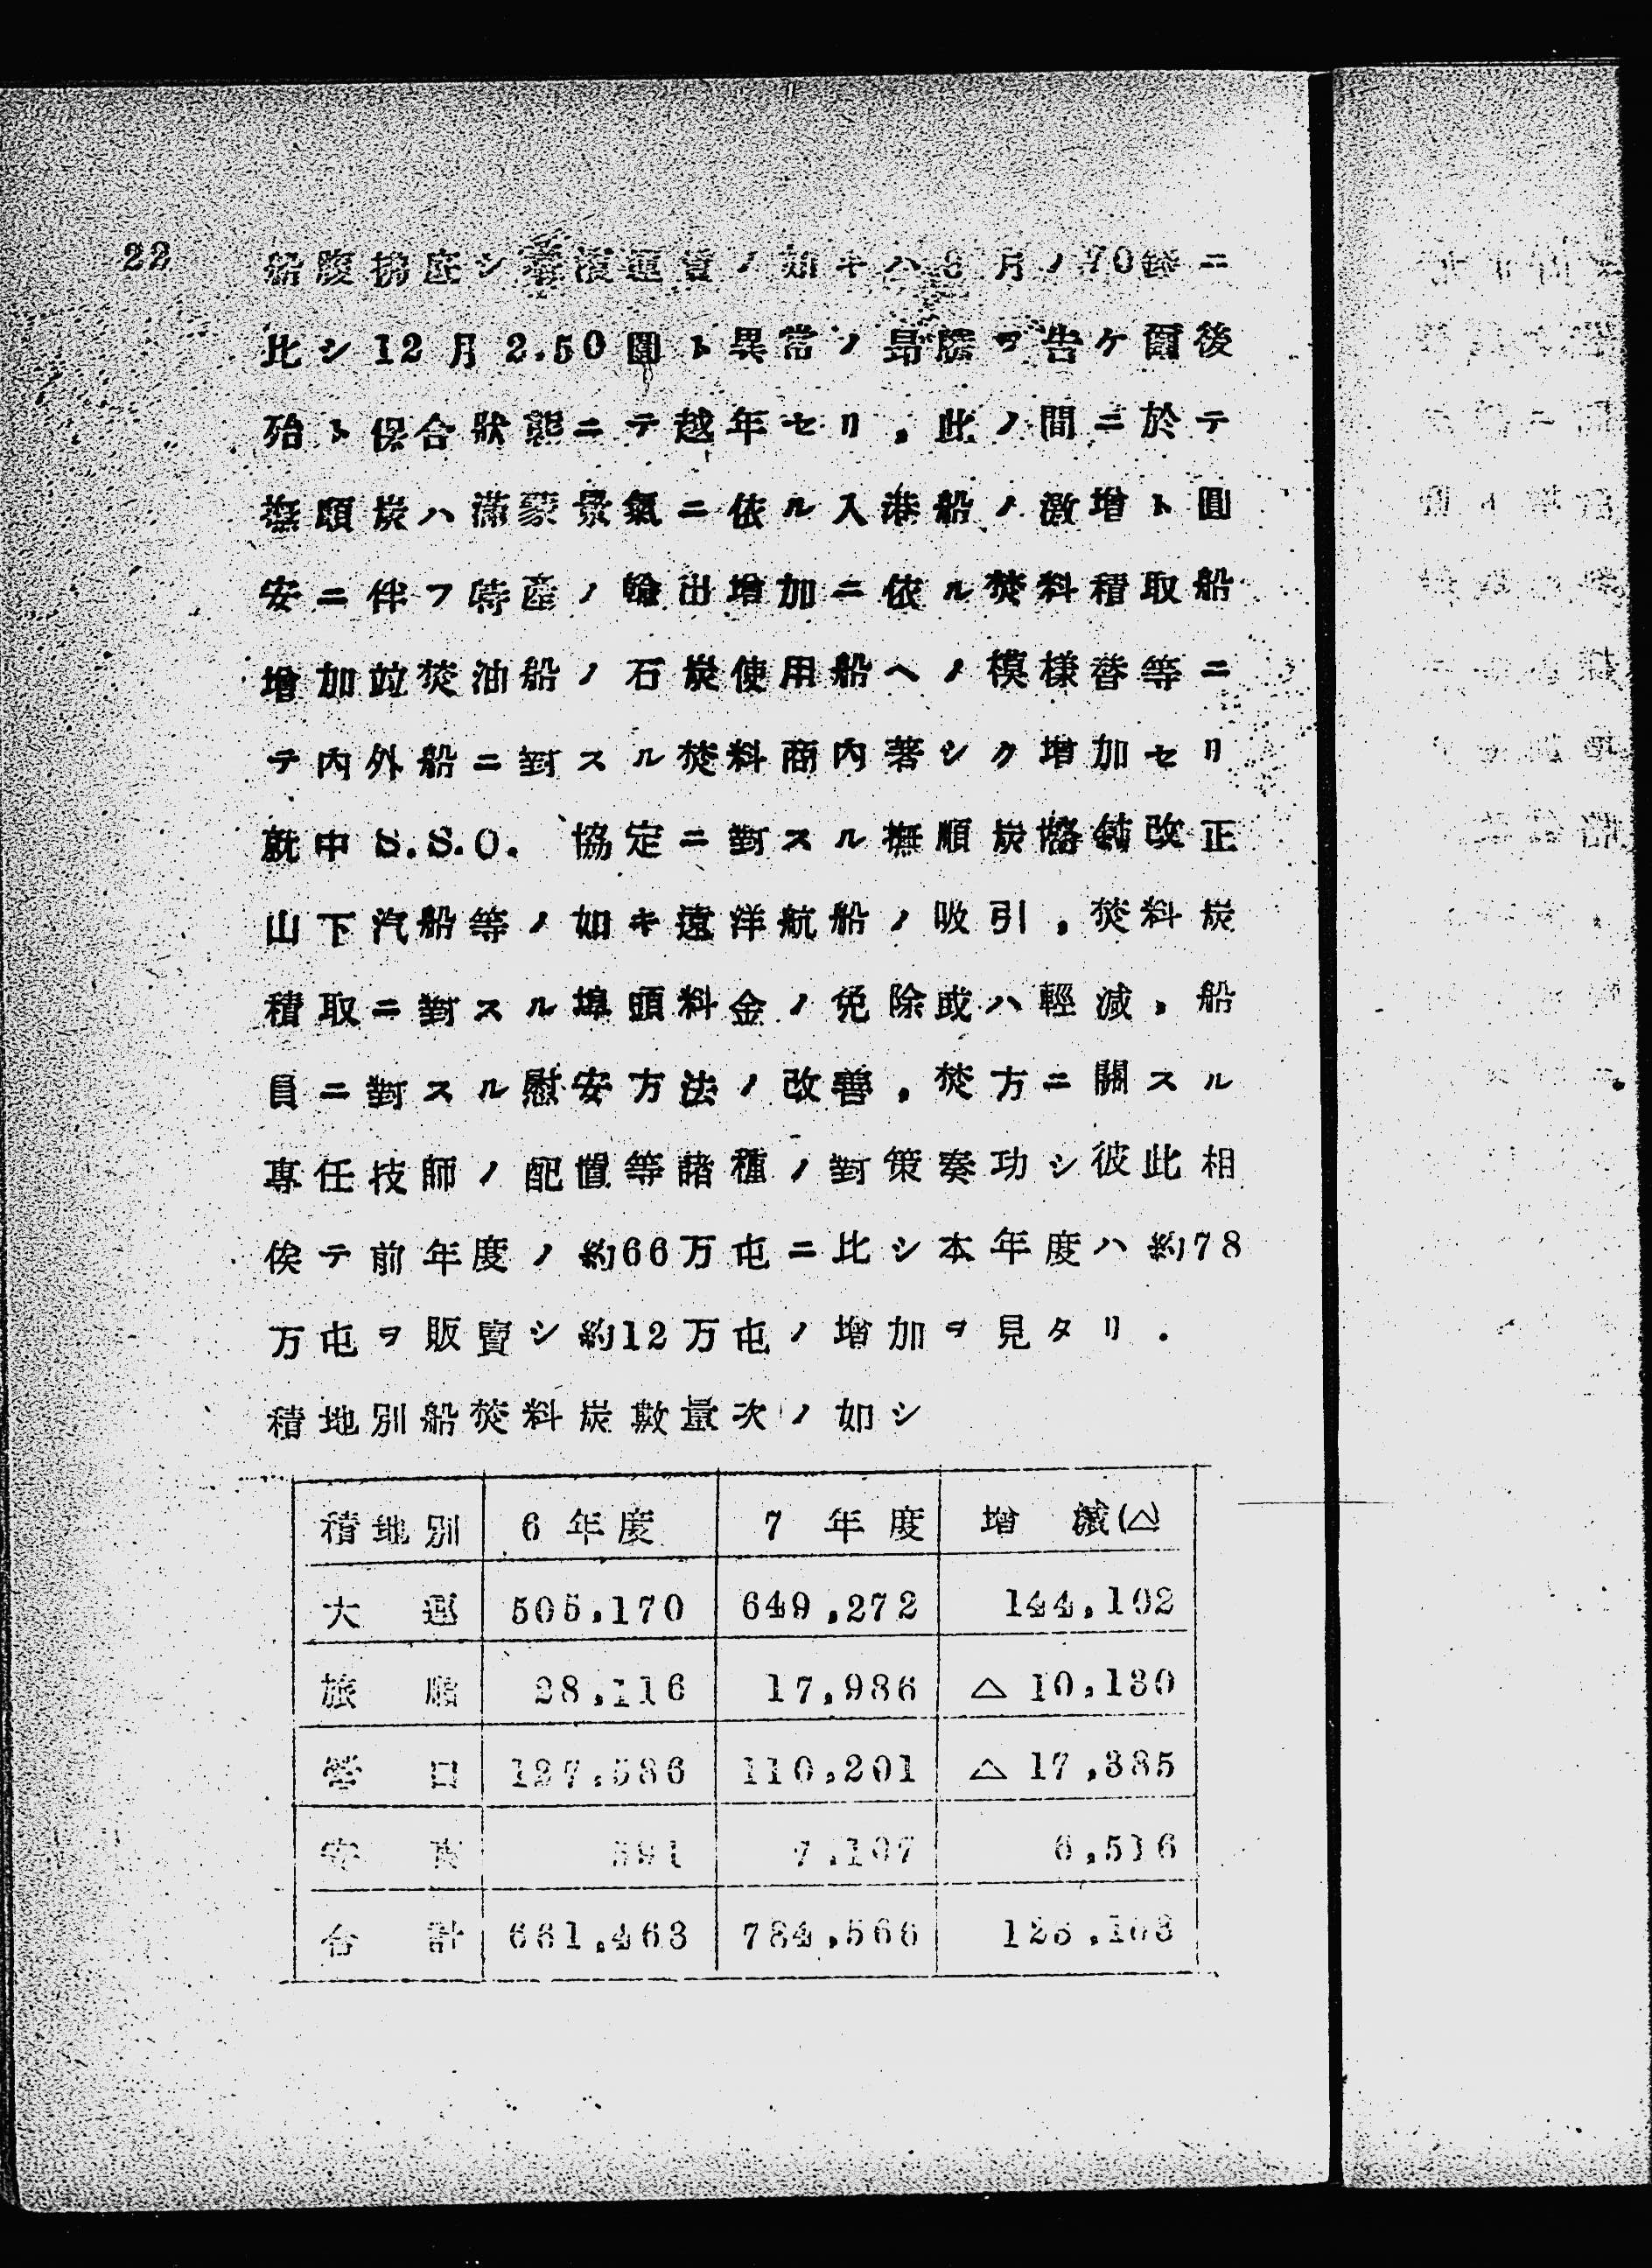 22
船腹拂底シ横濱運賃ノ如キハ8月ノ70錢ニ
比シ12月2.50圓ト異常ノ昻騰ヲ告ケ爾後
殆ト保合狀態ニテ越年セリ，此ノ間ニ於テ
撫順炭ハ滿蒙景氣ニ依ル入港船ノ激增ト圓
安ニ伴フ特產ノ輸出增加ニ依ル焚料積取船
增加竝焚油船ノ石炭使用船ヘノ模樣替等ニ
テ內外船ニ對スル焚料商內著シク增加セリ
就中S.S.O.協定ニ對スル撫順炭格付改正
山下汽船等ノ如キ遠洋航船ノ吸引，焚料炭
積取ニ對スル埠頭料金ノ免除或ハ輕減，船
員ニ對スル慰安方法ノ改善，焚方ニ關スル
專任技師ノ配置等諸種ノ對策奏功シ彼此相
俟テ前年度ノ約66万屯ニ比シ本年度ハ約78
万屯ヲ販賣シ約12万屯ノ增加ヲ見タリ．
積地別船焚料炭數量次ノ如シ
積地別 6年度 7年度 增減(△)
大連 505,170 649,272 144,102
旅順 28,116 17,986 △10,130
營口 127,586 110,201 △17,385
安東 591 7,107 6,516
合計 661,463 784,566 123,103